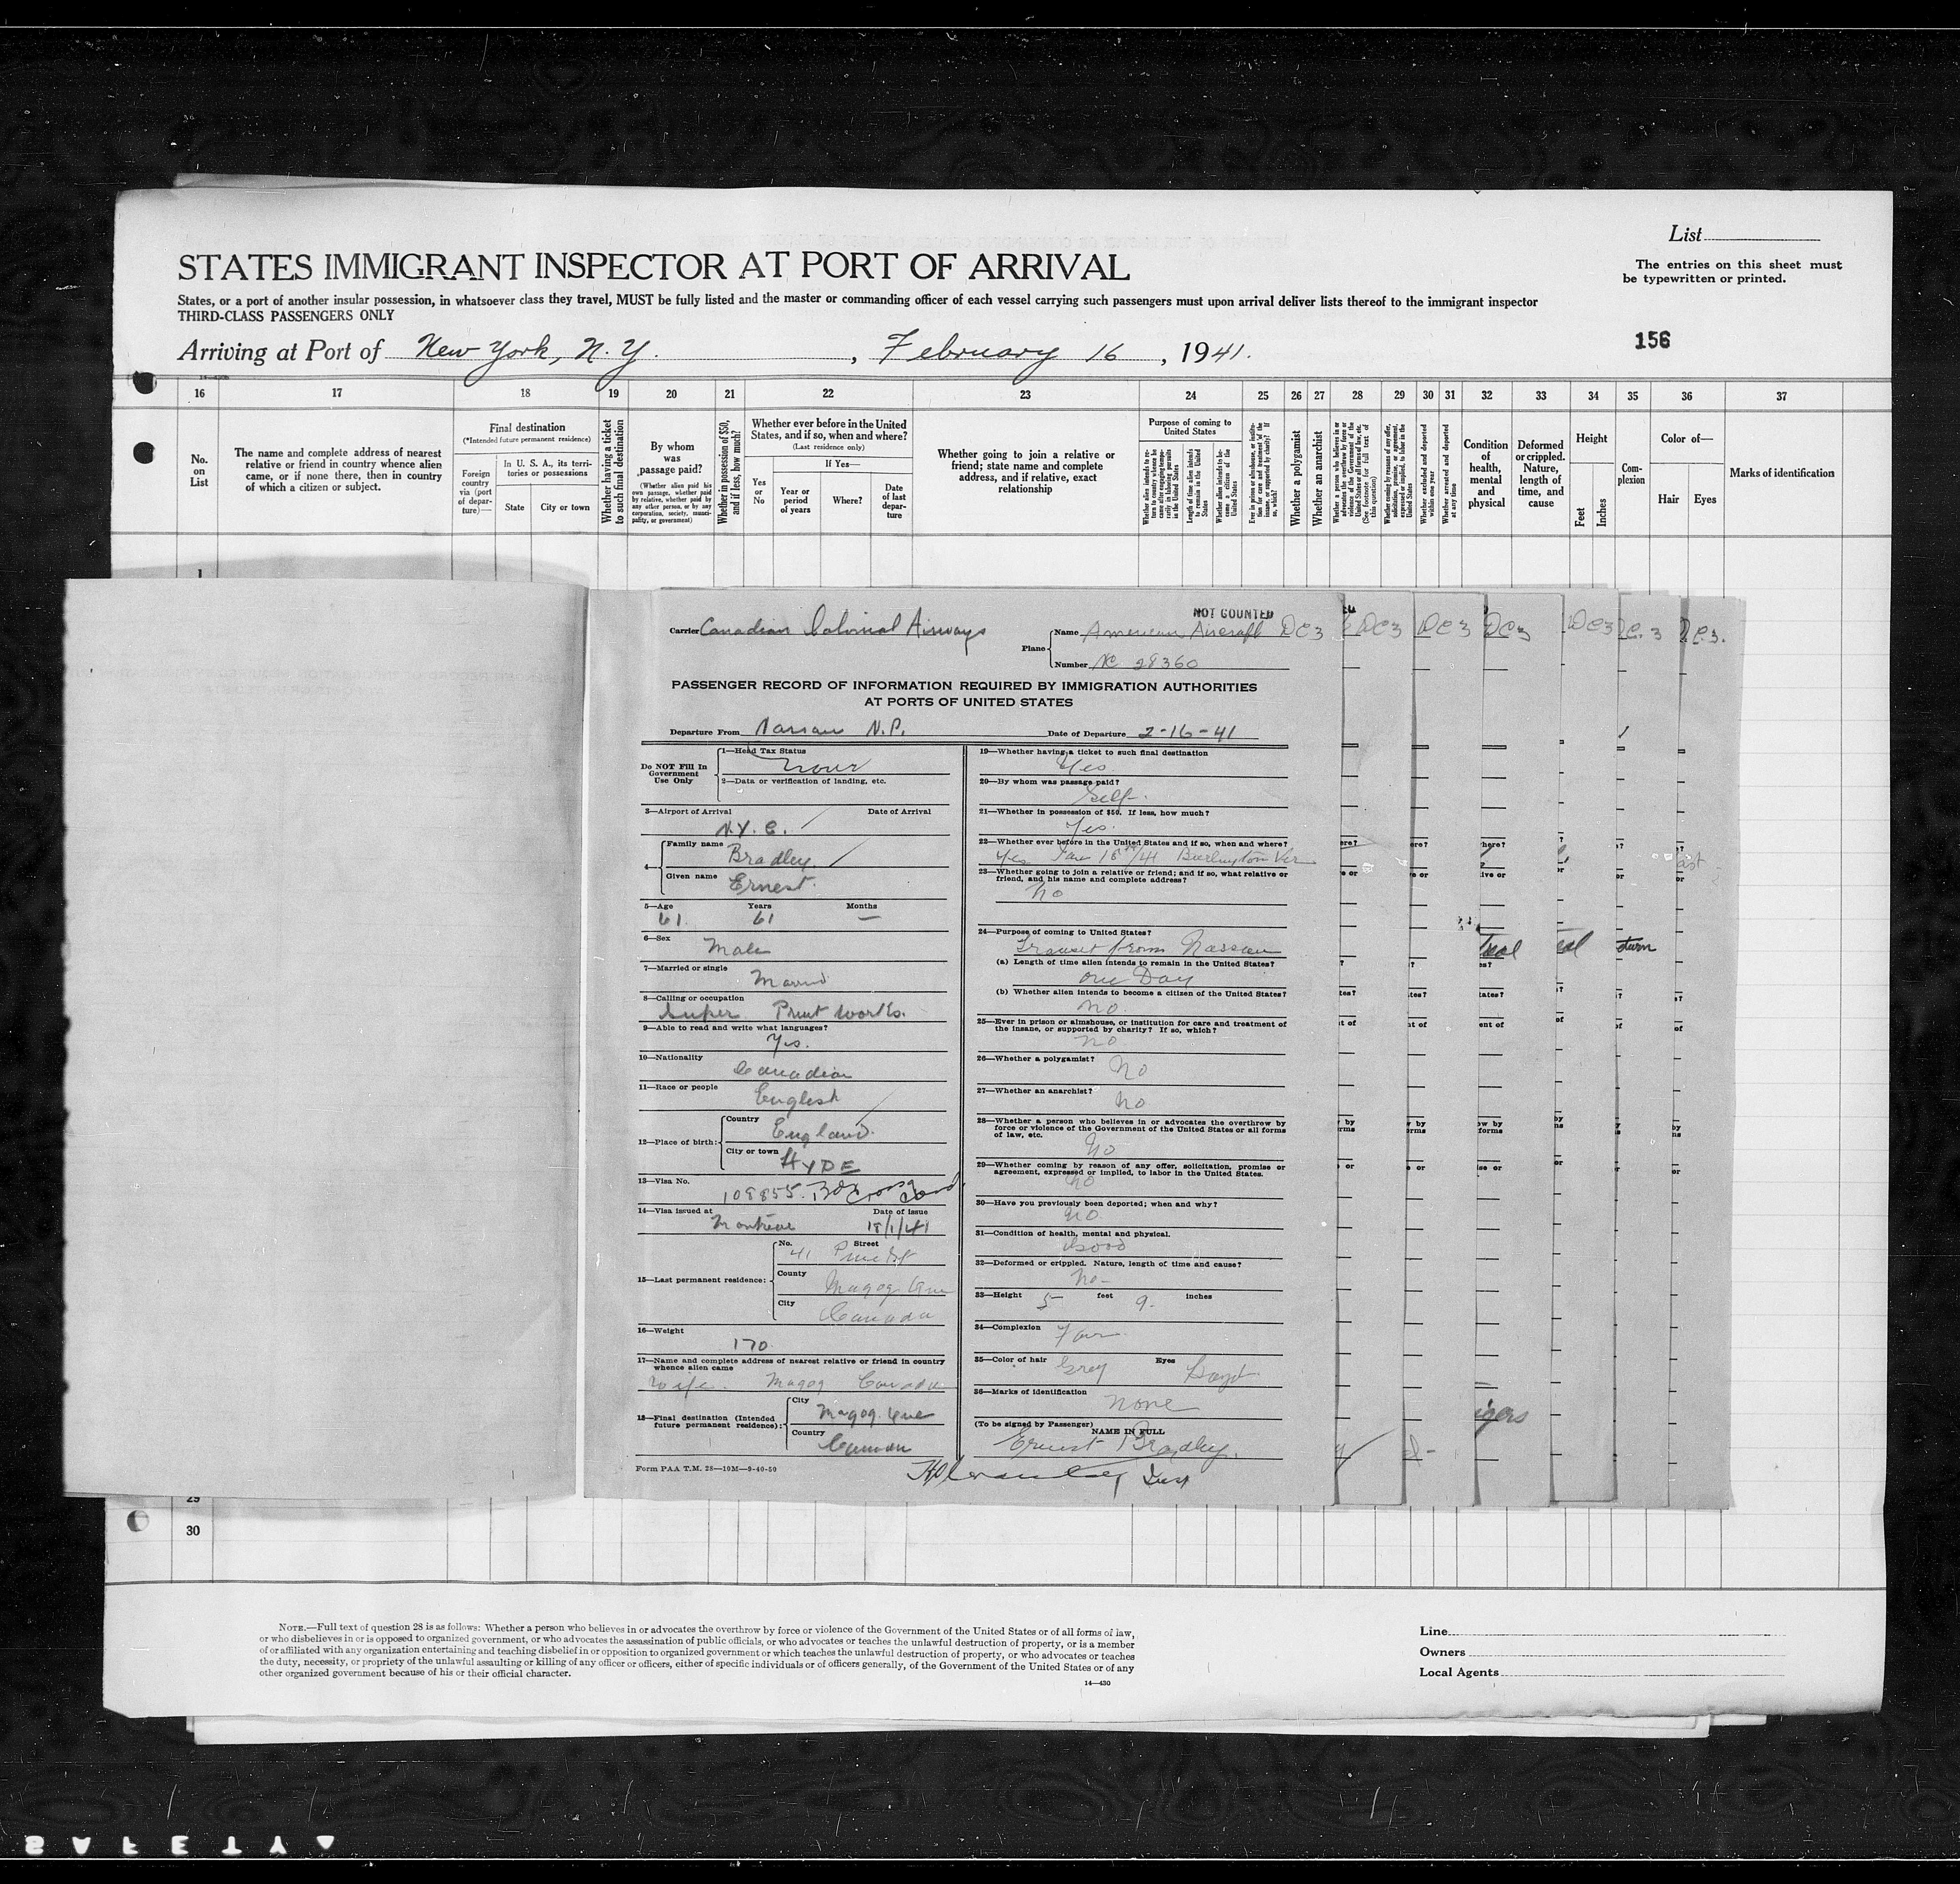 List
STATES IMMIGRANT INSPECTOR AT PORT OF ARRIVAL
The entries on this sheet must
be typewritten or printed.
States, or a port of another insular possession, in whatsoever class they travel, MUST be fully listed and the master or commanding officer of each vessel carrying such passengers must upon arrival deliver lists thereof to the immigrant inspector
THIRD-CLASS PASSENGERS ONLY
Arriving at Port of New York, N.Y. , February 16 , 1941.
156
16 17 18 19 20 21 22 23 24 25 26 27 28 29 30 31 32 33 34 35 36 37
No.
on
List
The name and complete address of nearest
relative or friend in country whence alien
came, or if none there, then in country
of which a citizen or subject.
Final destination
(*Intended future permanent residence)
Foreign
country
via (port
of depar-
ture)—
In U. S. A., its terri-
tories or possessions
State
City or town
Whether having a ticket
to such final destination
By whom
was
passage paid?
(Whether alien paid his
own passage, whether paid
by relative, whether paid by
any other person, or by any
corporation, society, munici-
pality, or government)
Whether in possession of $50,
and if less, how much?
Whether ever before in the United
States, and if so, when and where?
(Last residence only)
If Yes—
Yes
or
No
Year or
period
of years
Where?
Date
of last
depar-
ture
Whether going to join a relative or
friend; state name and complete
address, and if relative, exact
relationship
Purpose of coming to
United States
Length of time alien intends
to remain in the United
States
Whether alien intends to be-
come a citizen of the
United States
Whether a polygamist
Whether an anarchist
Whether excluded and deported
within one year
Whether arrested and deported
at any time
Condition
of
health,
mental
and
physical
Deformed
or crippled.
Nature,
length of
time, and
cause
Height
Feet
Inches
Com-
plexion
Color of—
Hair
Eyes
Marks of identification
1
NOT COUNTED
Carrier Canadian Colonial Airways
Plane
Name American Aircraft DC3
Number NC 28360
DC3 DC3 DC3 DC3
PASSENGER RECORD OF INFORMATION REQUIRED BY IMMIGRATION AUTHORITIES
AT PORTS OF UNITED STATES
Departure From Nassau N.P. Date of Departure 2-16-41
Do NOT Fill In
Government
Use Only
1—Head Tax Status
2—Data or verification of landing, etc.
3—Airport of Arrival Date of Arrival
N.Y.C.
4
Family name Bradley
Given name Ernest
5—Age Years Months
61 61 —
6—Sex
Male
7—Married or single
Married
8—Calling or occupation
Super Print Works.
9—Able to read and write what languages?
Yes.
10—Nationality
Canadian
11—Race or people
English
12—Place of birth:
Country
England
City or town
HYDE
13—Visa No.
108855
14—Visa issued at Date of Issue
Montreal 18/1/41
15—Last permanent residence:
No. Street
41
County
Magog Que
City
Canada
16—Weight
170
17—Name and complete address of nearest relative or friend in country
whence alien came
Wife. Magog Canada
18—Final destination (Intended
future permanent residence):
City
Magog. Que
Country
Canada
Form PAA T.M. 28—10M—9-40-50
19—Whether having a ticket to such final destination
Yes
20—By whom was passage paid?
Self-
21—Whether in possession of $50. If less, how much?
Yes.
22—Whether ever before in the United States and if so, when and where?
Yes Jan 18th/41 Burlington Ver
23—Whether going to join a relative or friend; and if so, what relative or
friend, and his name and complete address?
No
24—Purpose of coming to United States?
Transit from Nassau
(a) Length of time alien intends to remain in the United States?
One Day
(b) Whether alien intends to become a citizen of the United States?
No
25—Ever in prison or almshouse, or institution for care and treatment of
the insane, or supported by charity? If so, which?
No
26—Whether a polygamist?
No
27—Whether an anarchist?
No
28—Whether a person who believes in or advocates the overthrow by
force or violence of the Government of the United States or all forms
of law, etc.
No
29—Whether coming by reason of any offer, solicitation, promise or
agreement, expressed or implied, to labor in the United States.
No
30—Have you previously been deported; when and why?
No
31—Condition of health, mental and physical.
Good
32—Deformed or crippled. Nature, length of time and cause?
No-
33—Height 5 feet 9. inches
34—Complexion
Fair
35—Color of hair Grey Eyes
36—Marks of identification
None
(To be signed by Passenger)
NAME IN FULL
Ernest Bradley.
29
30
NOTE.—Full text of question 28 is as follows: Whether a person who believes in or advocates the overthrow by force or violence of the Government of the United States or of all forms of law,
or who disbelieves in or is opposed to organized government, or who advocates the assassination of public officials, or who advocates or teaches the unlawful destruction of property, or is a member
of or affiliated with any organization entertaining and teaching disbelief in or opposition to organized government or which teaches the unlawful destruction of property, or who advocates or teaches
the duty, necessity, or propriety of the unlawful assaulting or killing of any officer or officers, either of specific individuals or of officers generally, of the Government of the United States or of any
other organized government because of his or their official character.
14—430
Line
Owners
Local Agents
SAFETY